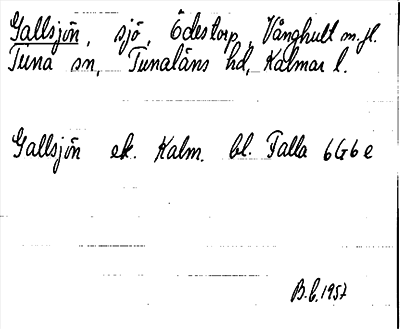 Gallsjön, sjö, Ödestorp, Vånghult m.fl.
Tuna sn, Tunaläns hd, Kalmar l.
Gallsjön ek. Kalm. bl. Falla 6G6e
B.b. 1957